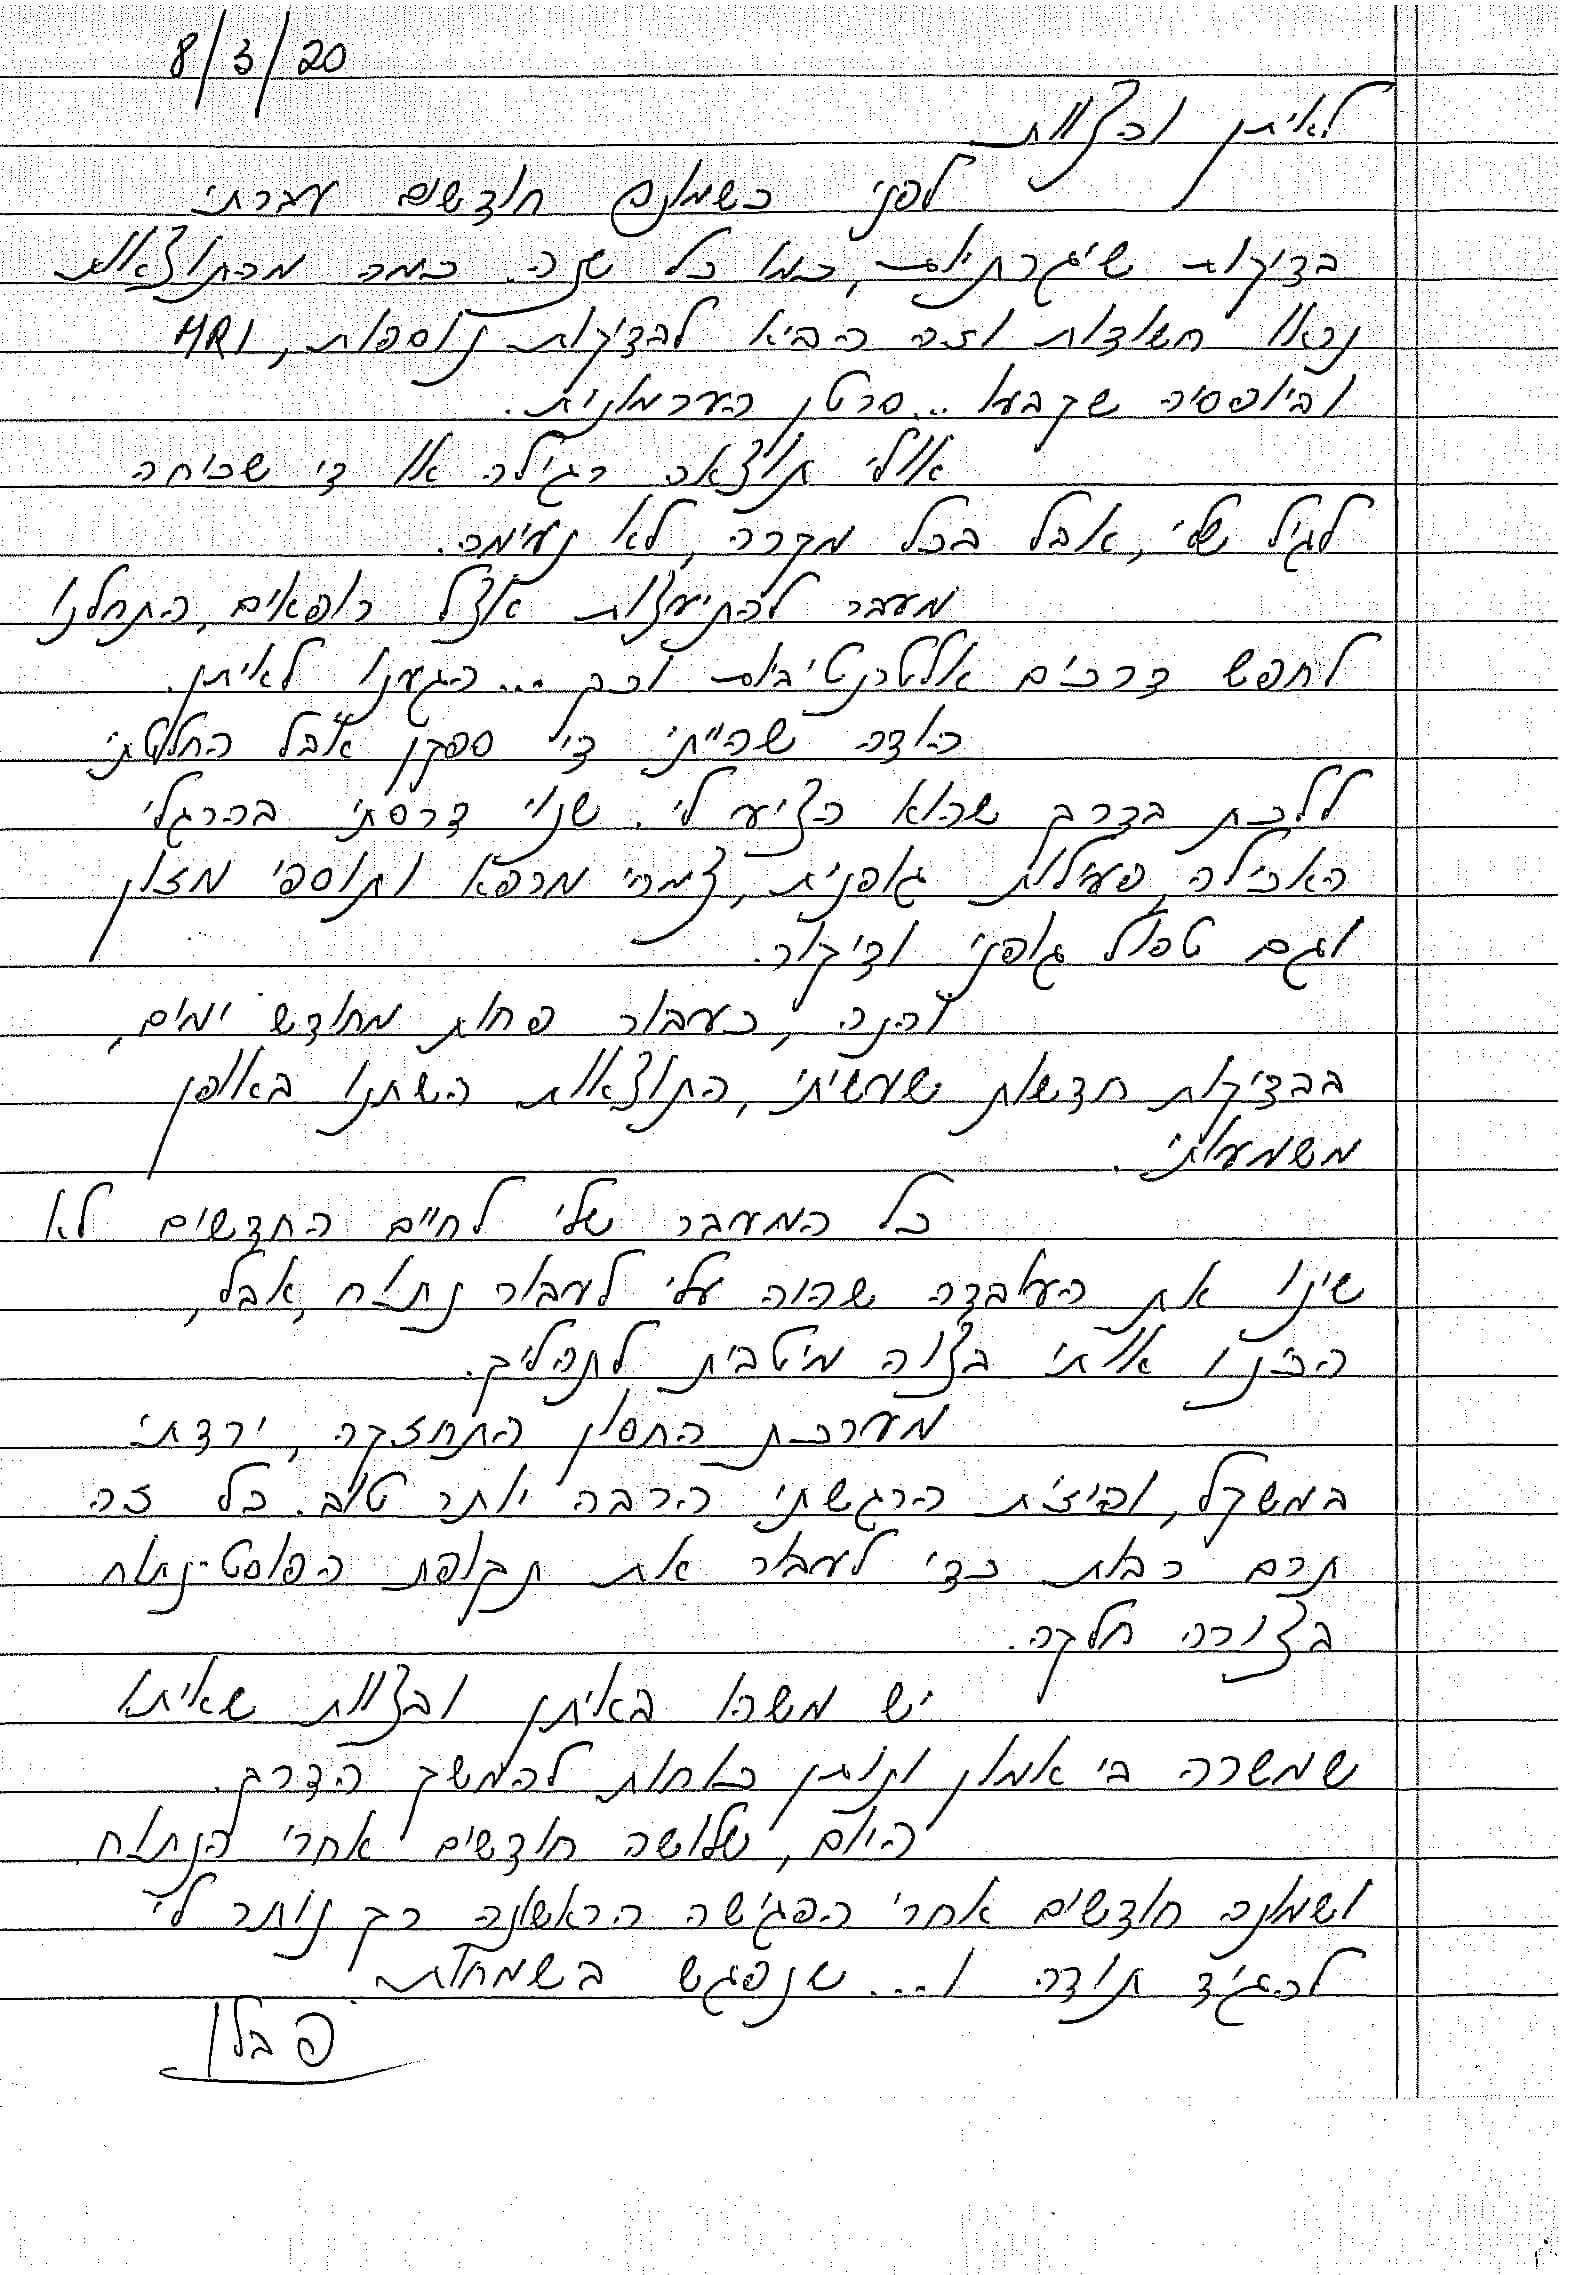 8/3/20
לאיתן והצוות
לפני כשמונה חודשים עברתי
בדיקות שיגרתיות, כמו כל שנה. כמה מהתוצאות
נראו חשודות וזה הביא לבדיקות נוספות, MRI
וביופסיה שקבעו ... סרטן הערמונית.
אולי תוצאה רגילה או די שכיחה
לגיל שלי, אבל בכל מקרה, לא נעימה.
מעבר להתיעצות אצל רופאים, התחלנו
לחפש דרכים אלטרנטיביות וכך ... הגענו לאיתן.
הודה שהייתי די ספקן אבל החלטתי
ללכת בדרך שהוא הציע לי. שנוי דרסתי בהרגלי
האכילה, פעילות גופנית, צמחי מרפא ותוספי מזון
וגם טפול גופני ודיקור.
והנה, כעבור פחות מחודש ימים,
בבדיקות חדשות שעשיתי, התוצאות השתנו באופן
משמעותי.
כל המעבר שלי לחיים החדשים לא
שינו את העובדה שהיה עלי לעבור נתוח, אבל,
הכינו אותי בצורה מיטבית לתהליך.
מערכת החסון התחזקה, ירדתי
במשקל, ופיזית הרגשתי הרבה יותר טוב. כל זה
תרם רבות כדי לעבור את תקופת הפוסט-נתוח
בצורה חלקה.
יש משהו באיתן ובצוות שאיתו
שמשרה בי אמון ונותן כוחות להמשך הדרך.
היום, שלושה חודשים אחרי הנתוח
ושמונה חודשים אחרי הפגישה הראשונה רק נותר לי
להגיד תודה ו... שנפגש בשמחות.
פבלו